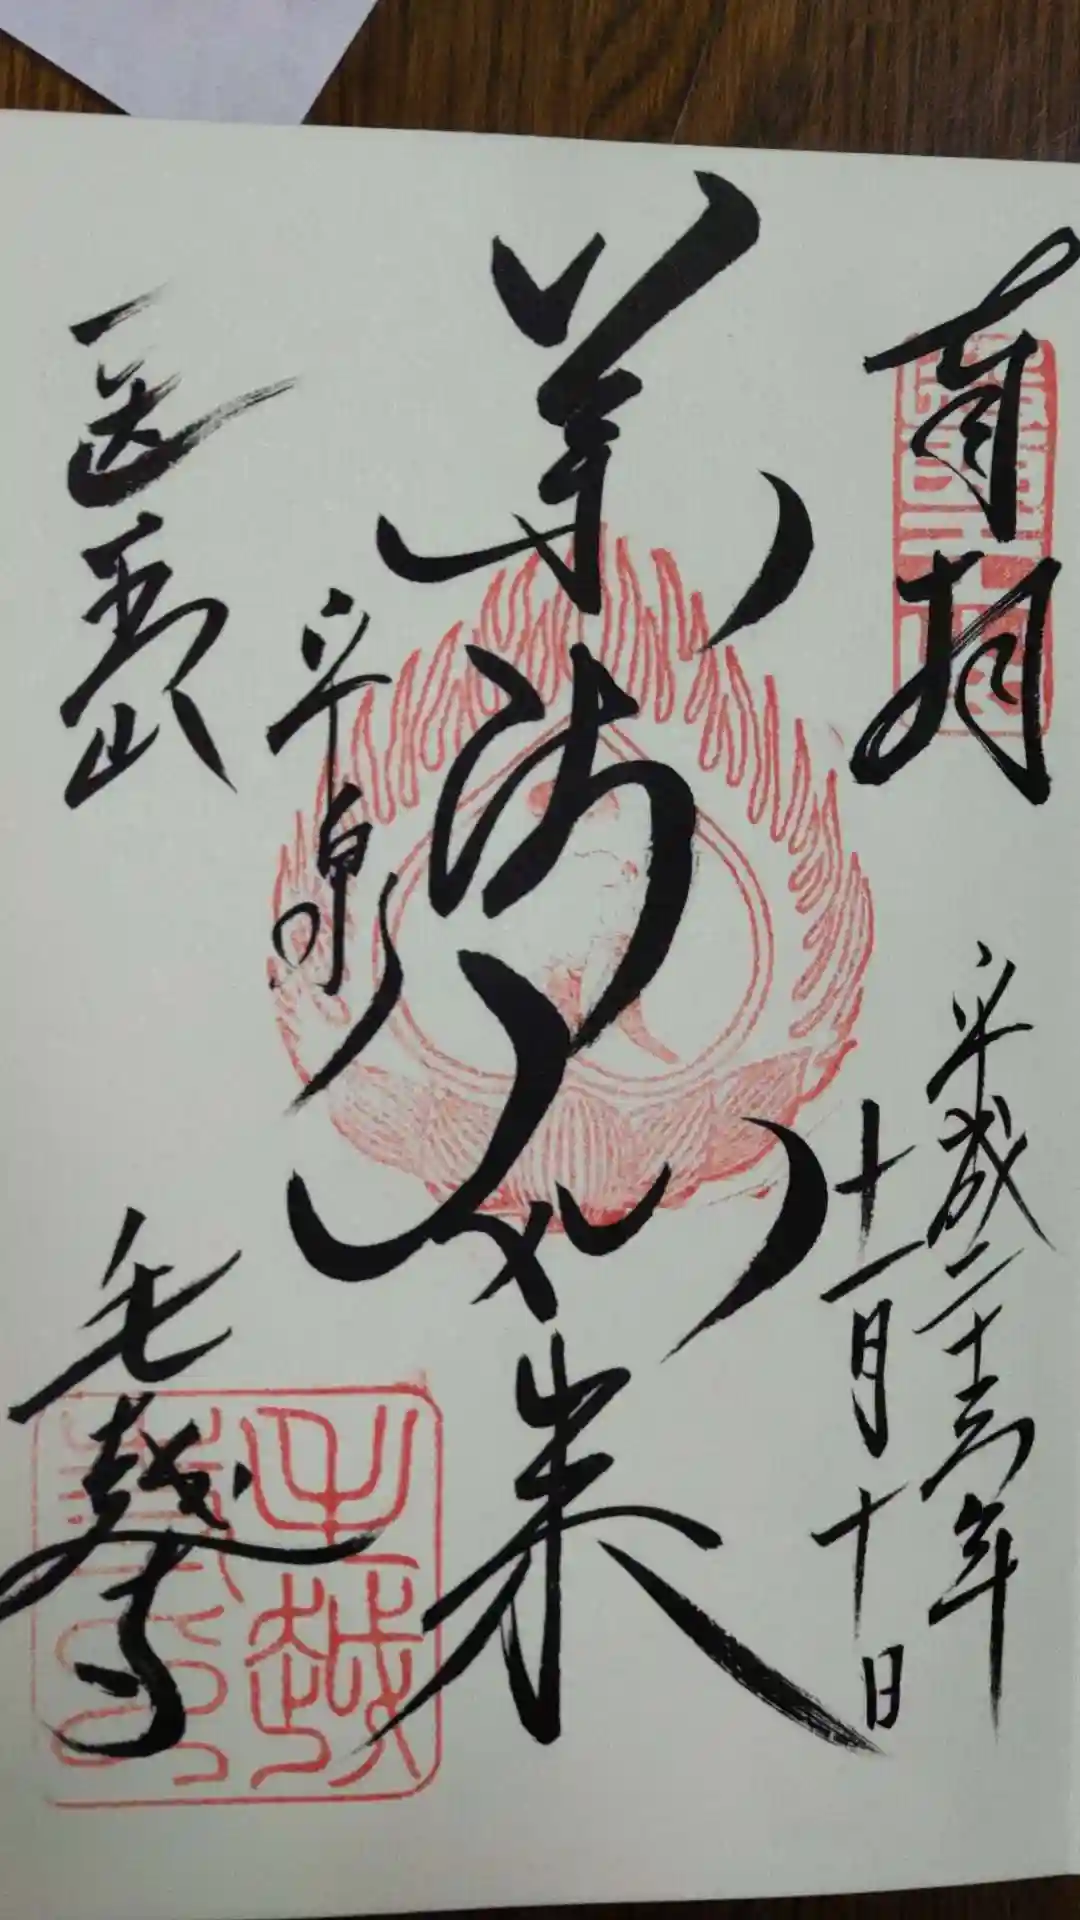 奉拝
平成二十三年
十一月十日
薬師如来
平泉
医王山
毛越寺